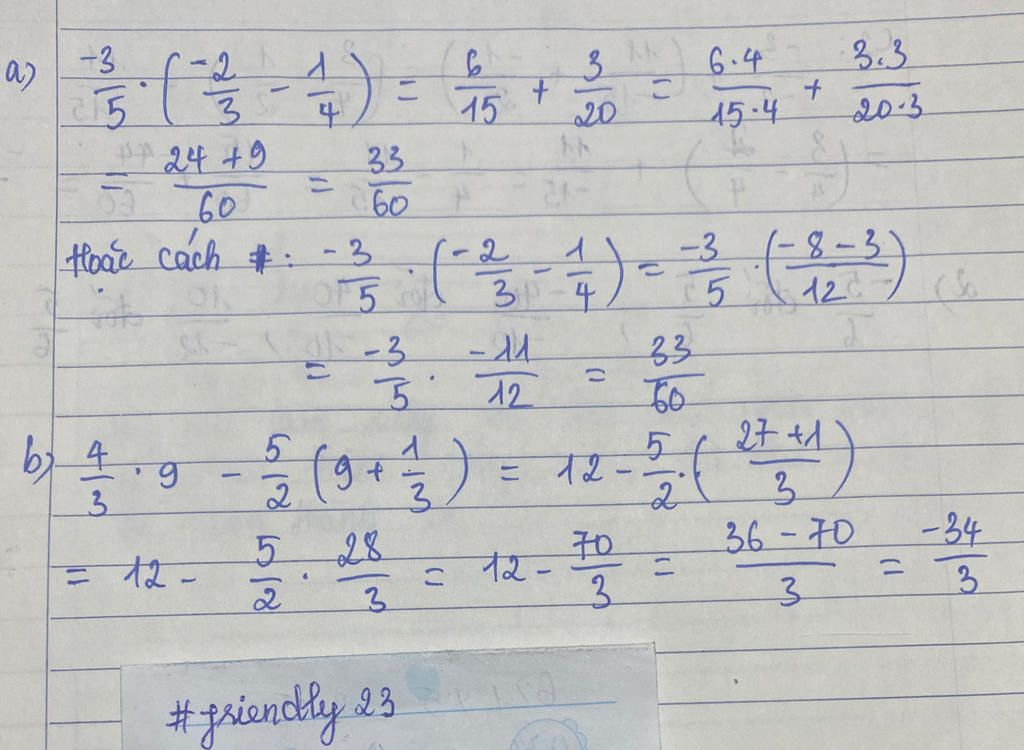 a) -3/5 · (-2/3 - 1/4) = 6/15 + 3/20 = 6·4/15·4 + 3.3/20·3
= 24+9/60 = 33/60
Hoặc cách #: -3/5 · (-2/3 - 1/4) = -3/5 · (-8-3/12)
= -3/5 · -11/12 = 33/60
b) 4/3 · 9 - 5/2 (9 + 1/3) = 12 - 5/2 · (27+1/3)
= 12 - 5/2 · 28/3 = 12 - 70/3 = 36-70/3 = -34/3
#friendly 23